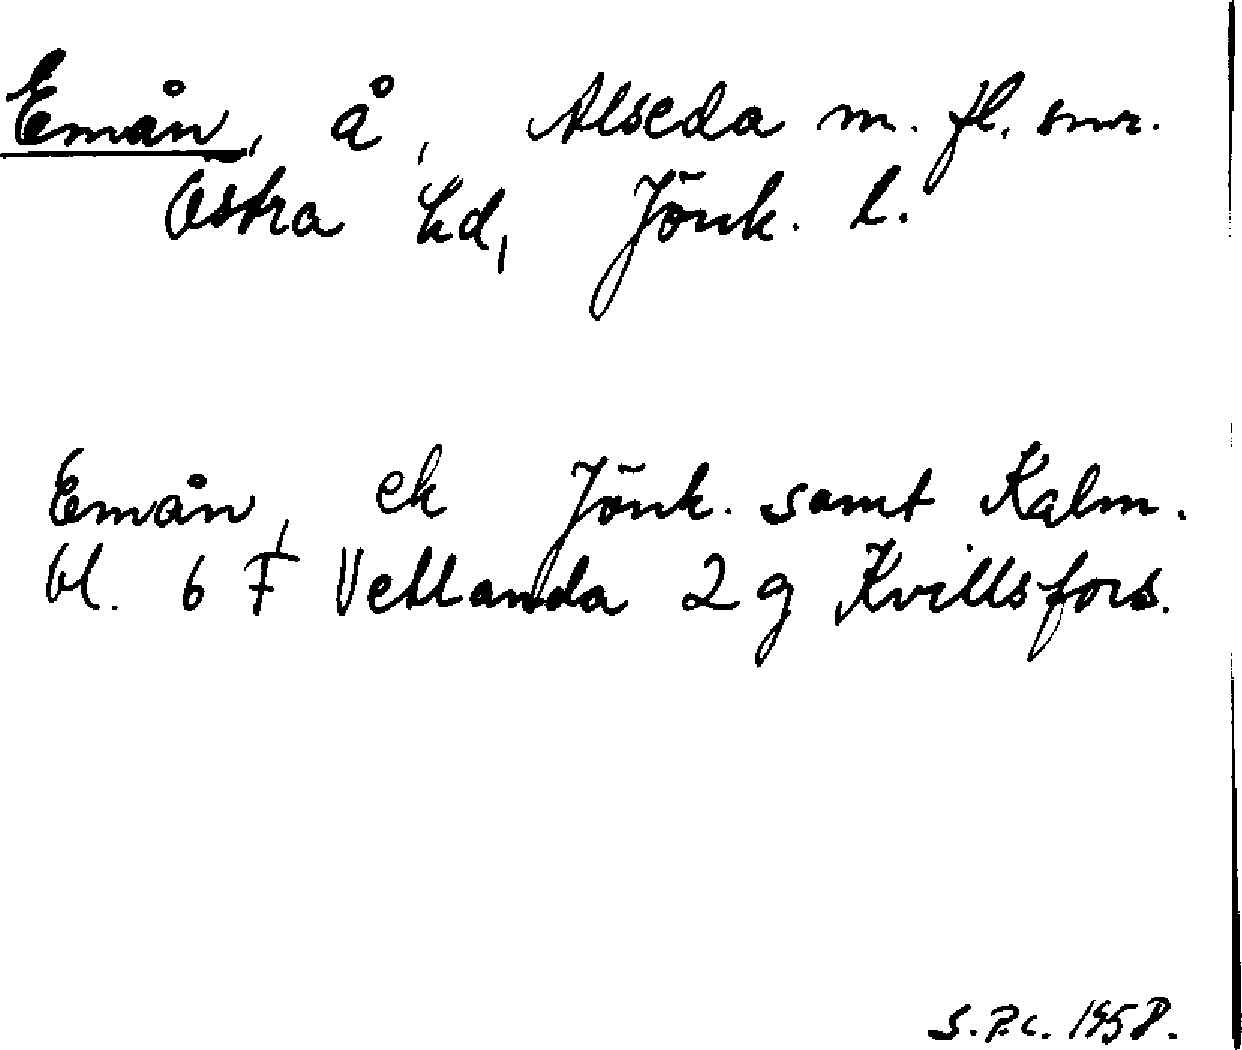 Emån, å, Alseda m. fl. snr.
Östra hd, Jönk. l.
Emån, ek Jönk. samt Kalm.
bl. 6 F Vetlanda 2 g Kvillsfors.
S. P. C. 1958.